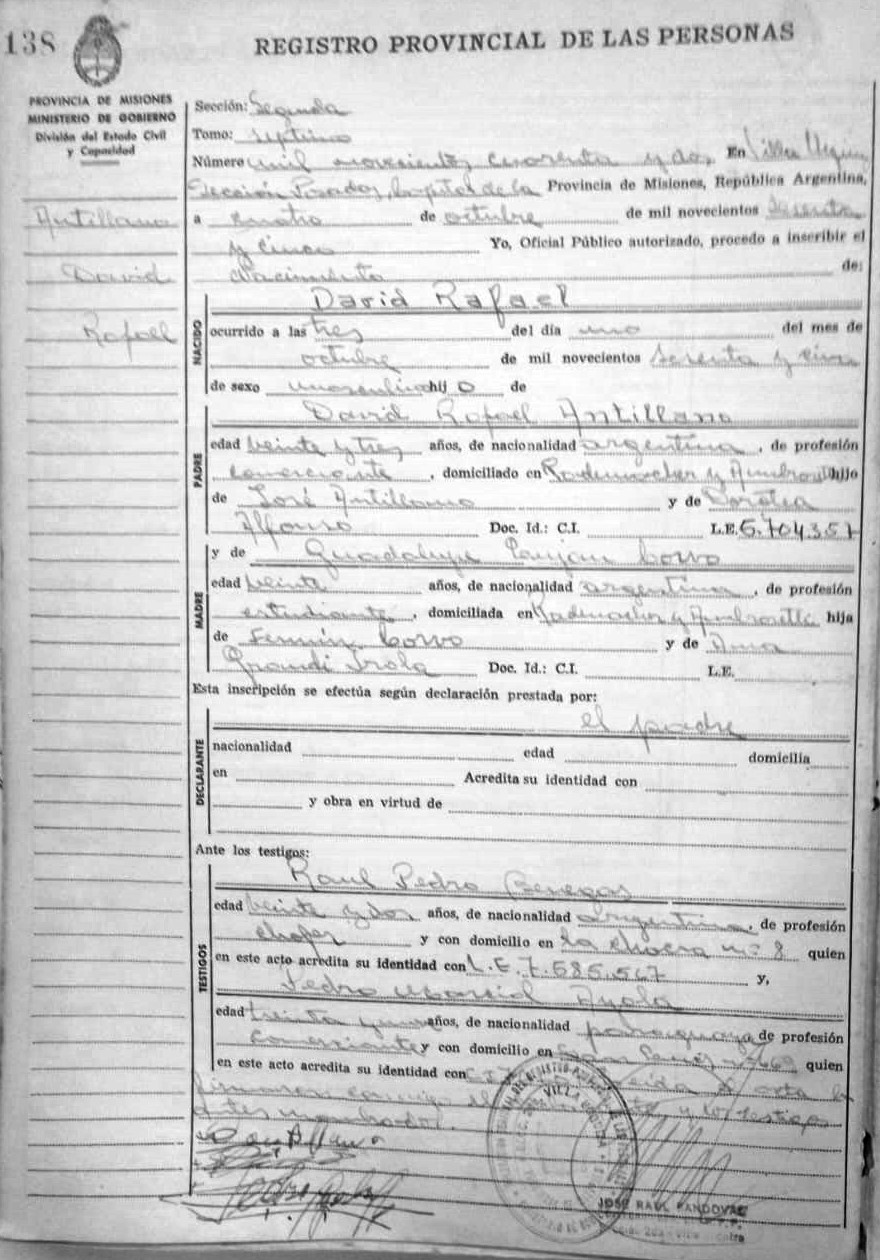 138
REGISTRO PROVINCIAL DE LAS PERSONAS
PROVINCIA DE MISIONES
MINISTERIO DE GOBIERNO
División del Estado Civil
y Capacidad
Antillano
David
Rafael
Sección: Segunda
Tomo: septimo
Número mil novecientos cuarenta y dos En Villa
Sección Posadas, capital de la Provincia de Misiones, República Argentina,
a cuatro de octubre de mil novecientos sesenta
y cinco Yo, Oficial Público autorizado, procedo a inscribir el
Nacimiento de:
NACIDO
David Rafael
ocurrido a las tres del día uno del mes de
octubre de mil novecientos sesenta y cinco
de sexo masculino hijo de
PADRE
David Rafael Antillano
edad veinte y tres años, de nacionalidad argentina, de profesión
comerciante, domiciliado en Rademacher y hijo
de José Antillano y de Dorotea
Alfonso Doc. Id.: C.I. L.E. 6.704.351
MADRE
y de Guadalupe Corvo
edad veinte años, de nacionalidad argentina, de profesión
estudiante, domiciliada en Rademacher y Ambrosetti hija
de Fermín Corvo y de Ana
Doc. Id.: C.I. L.E.
Esta inscripción se efectúa según declaración prestada por:
DECLARANTE
el padre
nacionalidad edad domicilia
en Acredita su identidad con
y obra en virtud de
Ante los testigos:
TESTIGOS
Raul Pedro Benegas
edad veinte y dos años, de nacionalidad argentina, de profesión
chofer y con domicilio en la chacra nº 8 quien
en este acto acredita su identidad con L.E. 7.585.547 y,
Pedro Ayala
edad treinta años, de nacionalidad paraguaya de profesión
comerciante y con domicilio en quien
en este acto acredita su identidad con C.I. acta la
firman conmigo y los testigos
antes nombrados.
VILLA
JOSE RAUL SANDOVAL